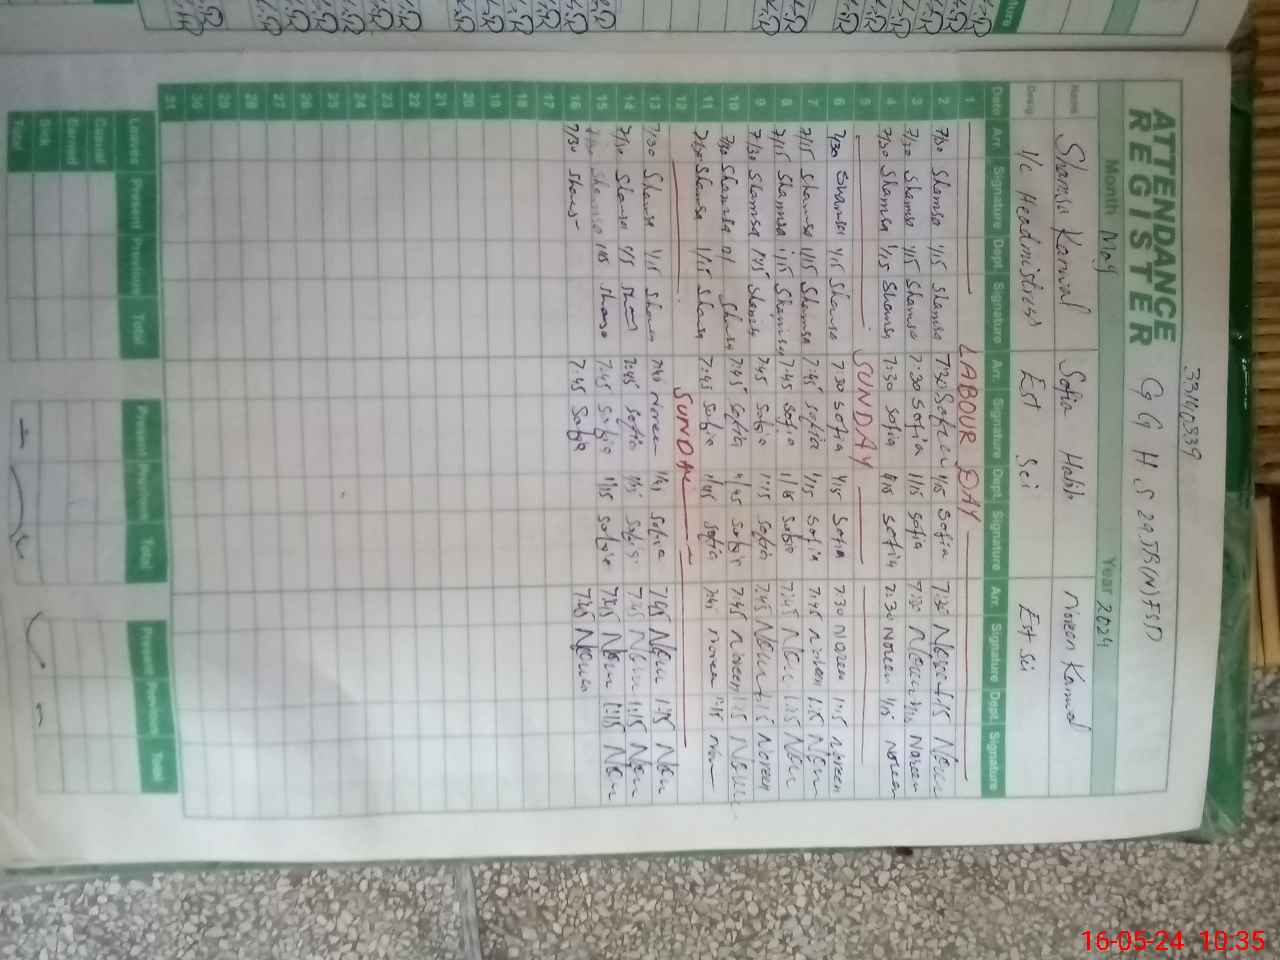 33140339
ATTENDANCE
REGISTER
G G H S 297B(N) FSD
Month May Year 2024
Name Shamsa Kanwal Sofia Habib Noreen Kanwal
Desig I/C Headmistress Est Sci Est Sci
Date Arr. Signature Dept. Signature Arr. Signature Dept. Signature Arr. Signature Dept. Signature
1 LABOUR DAY
2 7/30 Shamsa 1/15 Shamsa 7:30 Sofia 1/15 Sofia 7:30
3 7/30 Shamsa 1/15 Shamsa 7:30 Sofia 1/15 Sofia 7:30 Noreen
4 7/30 Shamsa 1/15 Shamsa 7:30 Sofia 1/15 Sofia 7:30 Noreen 1/15 Noreen
5 SUNDAY
6 7/30 Shamsa 1/15 Shamsa 7:30 Sofia 1/15 Sofia 7:30 Noreen 1:15 Noreen
7 7/15 Shamsa 1/15 Shamsa 7:45 Sofia 1/15 Sofia 7:45 Noreen 1:15
8 7/15 Shamsa 1/15 Shamsa 7:45 Sofia 1/15 Sofia 7:45
9 7/30 Shamsa 1/15 Shamsa 7:45 Sofia 1:15 Sofia 7:45 Noreen
10 7/30 Shamsa Shamsa 7:45 Sofia 1/45 Sofia 7:45 Noreen 1:15
11 7/30 Shamsa 1/15 Shamsa 7:45 Sofia 1/45 Sofia 7:45 Noreen 1:15
12 SUNDAY
13 7/30 Shamsa 1/15 Shamsa 7:45 Noreen Sofia 7:45 1:15
14 7/30 Shamsa 1/15 7:45 Sofia Sofia 7:45 1:15
15 Shamsa 1/15 Shamsa 7:45 Sofia 1/15 Sofia 7:45 1:15
16 7/30 Shamsa 7:45 Sofia 7:45
17
18
19
20
21
22
23
24
25
26
27
28
29
30
31
Leaves Present Previous Total Present Previous Total Present Previous Total
Casual
Earned
Sick
Total
16-05-24 10:35